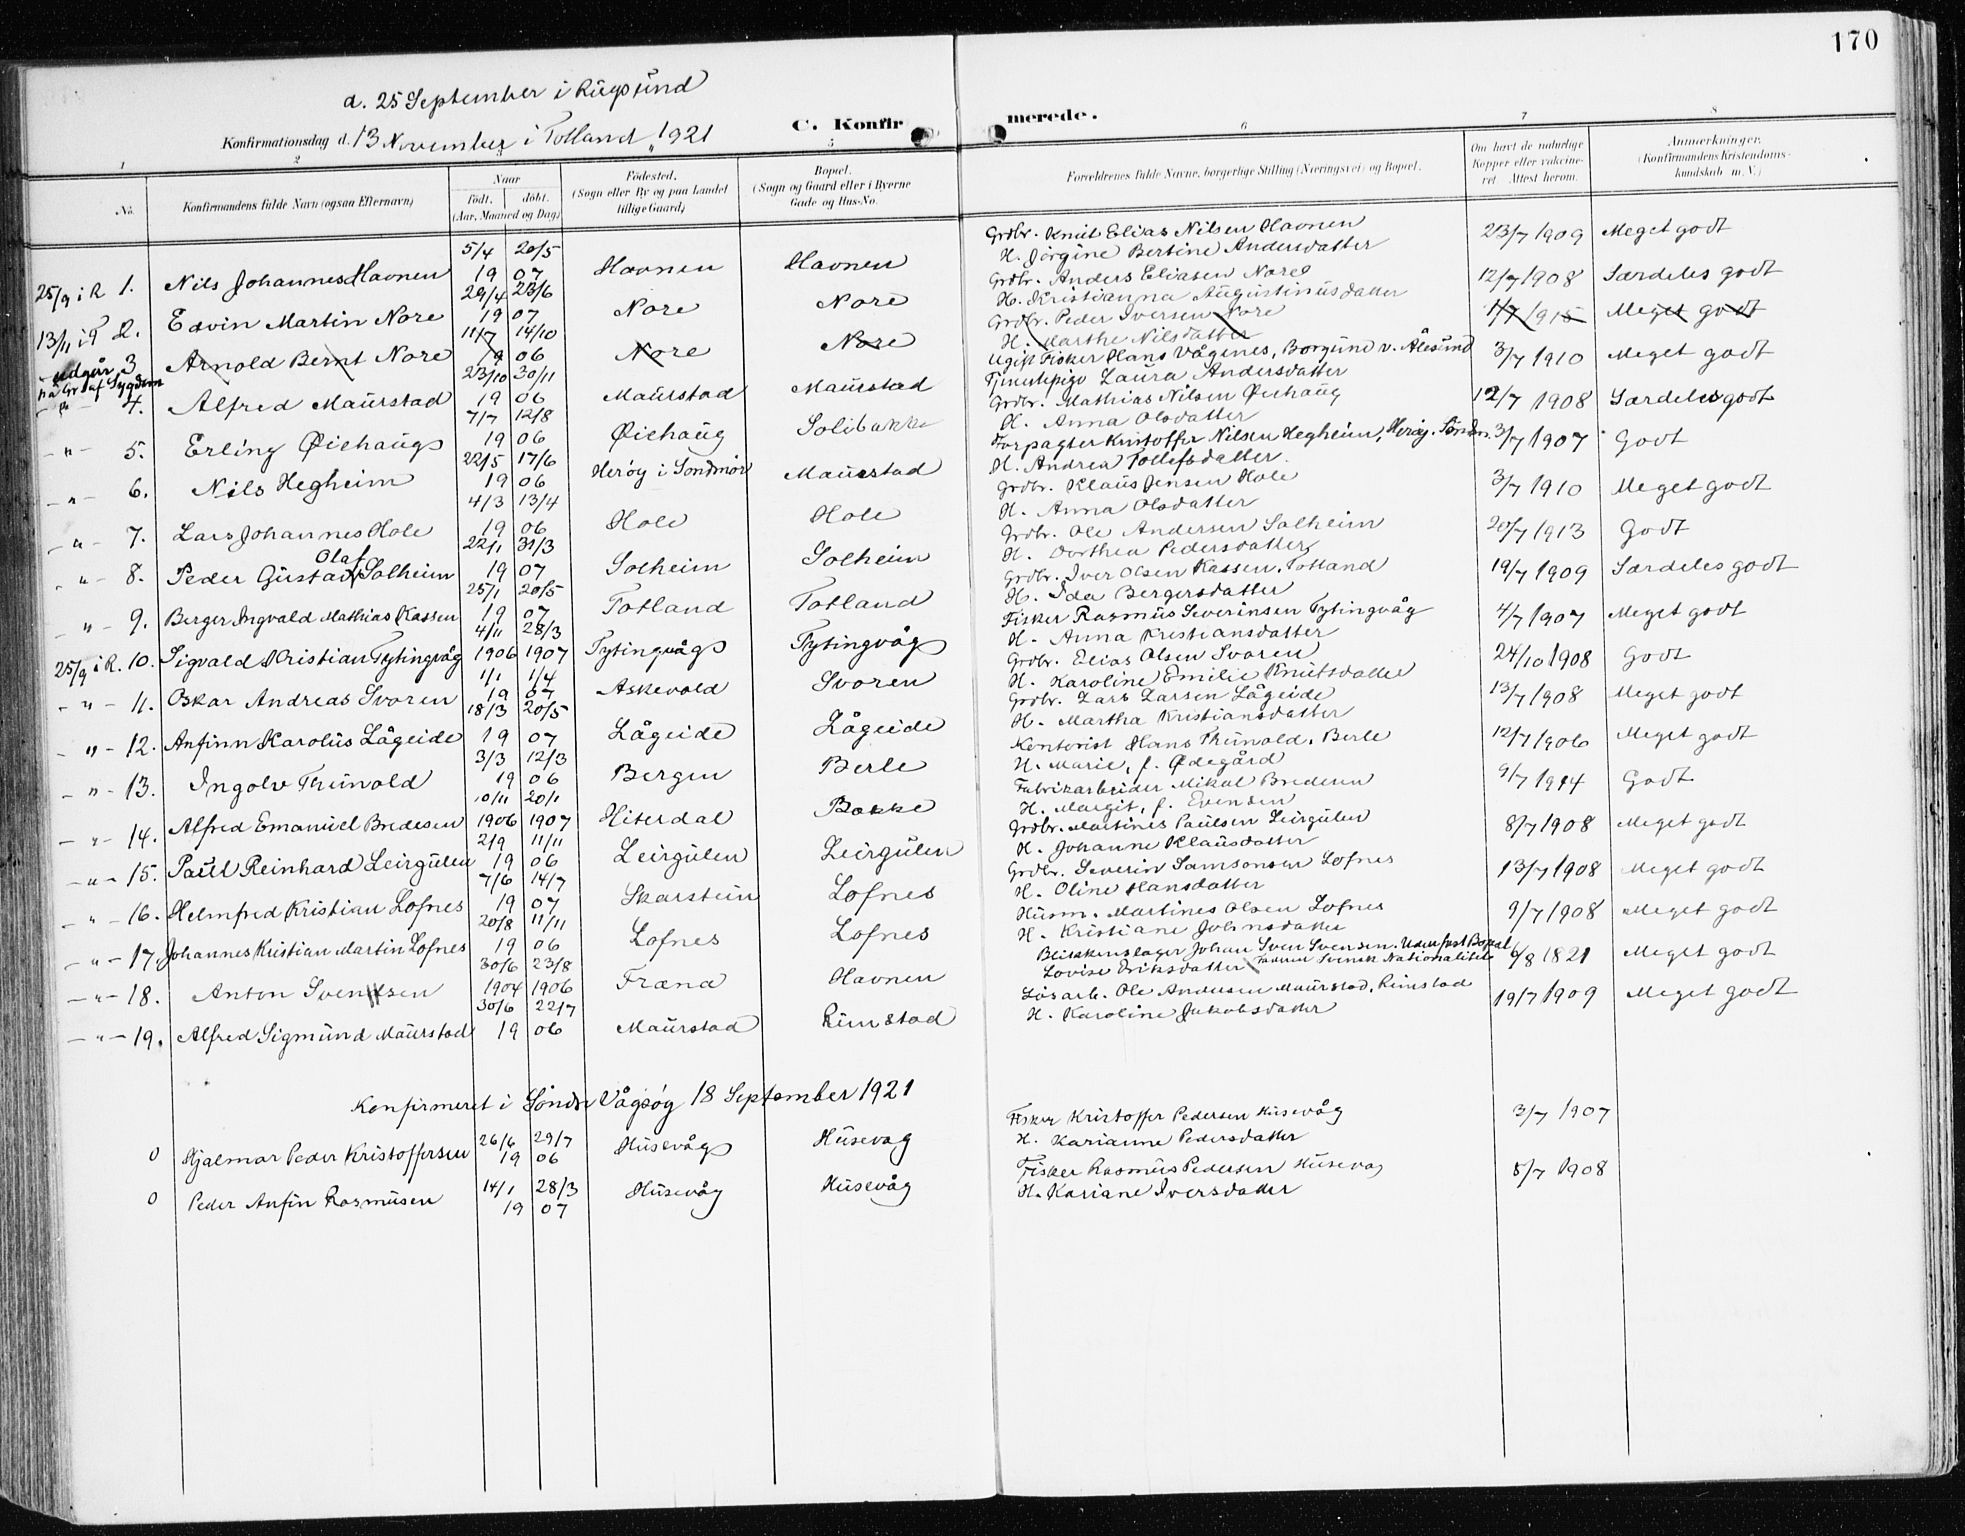 170
d. 25 September i Rugsund
Konfirmationsdag d. 13 November i Totland 1921
C. Konfirmerede.
1 2 5 6 7 8
No.
Konfirmandens fulde Navn (ogsaa Efternavn)
Naar
født. døbt.
(Aar, Maaned og Dag)
Fødested.
(Sogn eller By og paa Landet
tillige Gaard)
Bopæl.
(Sogn og Gaard eller i Byerne
Gade og Hus-No.
Forældrenes fulde Navne, borgerlige Stilling (Næringsvei) og Bopæl.
Om havt de naturlige
Kopper eller vakcine-
ret. Attest herom.
Anmerkninger.
(Konfirmandens Kristendoms-
kundskab m. V.)
25/9 i R 1. Nils Johannes Havnen 5/4 1907 20/5 Havnen Havnen Grdbr. Knut Elias Nilsen Havnen 23/7 1909 Meget godt
H. Jørgine Bertine Andersdatter
13/11 i T 2. Edvin Martin Nore 29/4 1907 23/6 Nore Nore Grdbr. Anders Eliasen Nore 12/7 1908 Særdeles godt
H. Kristianna Augustinusdatter
Udgår 3 Arnold Bernt Nore 11/7 1906 14/10 Nore Nore Grdbr. Peder Iversen Nore 1/7 1915 Meget godt
på Gr. af Sygdom H. Marthe Nilsdatter
4. Alfred Maurstad 23/10 1906 30/11 Maurstad Maurstad Ugift Fisker Hans Vågenes, Borgund v. Ålesund 3/7 1910 Meget godt
Laura Andersdatter
- " - 5. Erling Øiehaug 7/7 1906 12/8 Øiehaug Solibakke Grdbr. Mathias Nilsen Øiehaug 12/7 1908 Særdeles godt
H. Anna Olsdatter
- " - 6. Nils Hegheim 22/5 1906 17/6 Herøy i Søndmør Maurstad Forpagter Kristoffer Nilsen Hegheim, Herøy. Søndm. 3/7 1907 Godt
H. Andrea Tollefsdatter.
- " - 7. Lars Johannes Hole 4/3 1906 13/4 Hole Hole Grdbr. Klaus Jensen Hole 3/7 1910 Meget godt
H. Anna Olsdatter
- " - 8. Peder Gustav Olaf Solheim 22/1 1907 31/3 Solheim Solheim Grdbr. Ole Andersen Solheim 20/7 1913 Godt
H. Dorthea Pedersdatter
- " - 9. Berger Ingvald Mathias Kassen 25/1 1907 20/5 Totland Totland Grdbr. Iver Olsen Kassen, Totland 19/7 1909 Særdeles godt
H. Ida Bergersdatter
25/9 i R. 10. Sigvald Kristian Tytingvåg 4/11 1906 28/3 1907 Tytingvåg Tytingvåg Fisker Rasmus Severinsen Tytingvåg 4/7 1907 Meget godt
H. Anna Kristiansdatter
- " - 11. Oskar Andreas Svoren 1/1 1907 1/4 Askevold Svoren Grdbr. Elias Olsen Svoren 24/10 1908 Godt
H. Karoline Emilie Knutsdatter
- " - 12. Anfinn Karolus Lågeide 18/3 1907 20/5 Lågeide Lågeide Grdbr. Lars Larsen Lågeide 13/7 1908 Meget godt
H. Martha Kristiansdatter
- " - 13. Ingolv Thunold 3/3 1906 12/3 Bergen Berle Kontorist Hans Thunold, Berle 12/7 1906 Meget godt
H. Marie, f. Ødegård
- " - 14. Alfred Emanuel Bredesen 10/11 1906 20/1 1907 Hiterdal Bakke Fabrikarbeider Mikal Bredesen 9/7 1914 Godt
H. Margit, f. Evensen
- " - 15. Paul Reinhard Leirgulen 2/9 1906 11/11 Leirgulen Leirgulen Grdbr. Martines Paulsen Leirgulen 8/7 1908 Meget godt
H. Johanne Klausdatter
- " - 16. Helmfred Kristian Lofnes 7/6 1907 14/7 Skarstein Lofnes Grdbr. Severin Samsonsen Lofnes 13/7 1908 Meget godt
H. Oline Hansdatter
- " - 17. Johannes Kristian Martin Lofnes 20/8 1906 11/11 Lofnes Lofnes Husm. Martines Olsen Lofnes 9/7 1908 Meget godt
H. Kristiane Johnsdatter
- " - 18. Anton Svensen 30/6 1904 23/8 1906 Fræna Havnen Blikkenslager Johan Sven Svensen. Uden fast Bopæl 6/8 1821 Meget godt
Lovise Eriksdatter Svensk Nationalitet
- " - 19. Alfred Sigmund Maurstad 30/6 1906 22/7 Maurstad Rimstad Løsarb. Ole Andersen Maurstad, Rimstad 19/7 1909 Meget godt
H. Karoline Jakobsdatter
Konfirmeret i Søndr Vågsøy 18 September 1921
0 Hjalmar Peder Kristoffersen 26/6 1906 29/7 Husevåg Husevag Fisker Kristoffer Pedersen Husevåg 3/7 1907
H. Karianne Pedersdatter
0 Peder Anfin Rasmusen 14/1 1907 28/3 Husevåg Husevåg Fisker Rasmus Pedersen Husevag 5/7 1908
H. Kariane Iversdatter